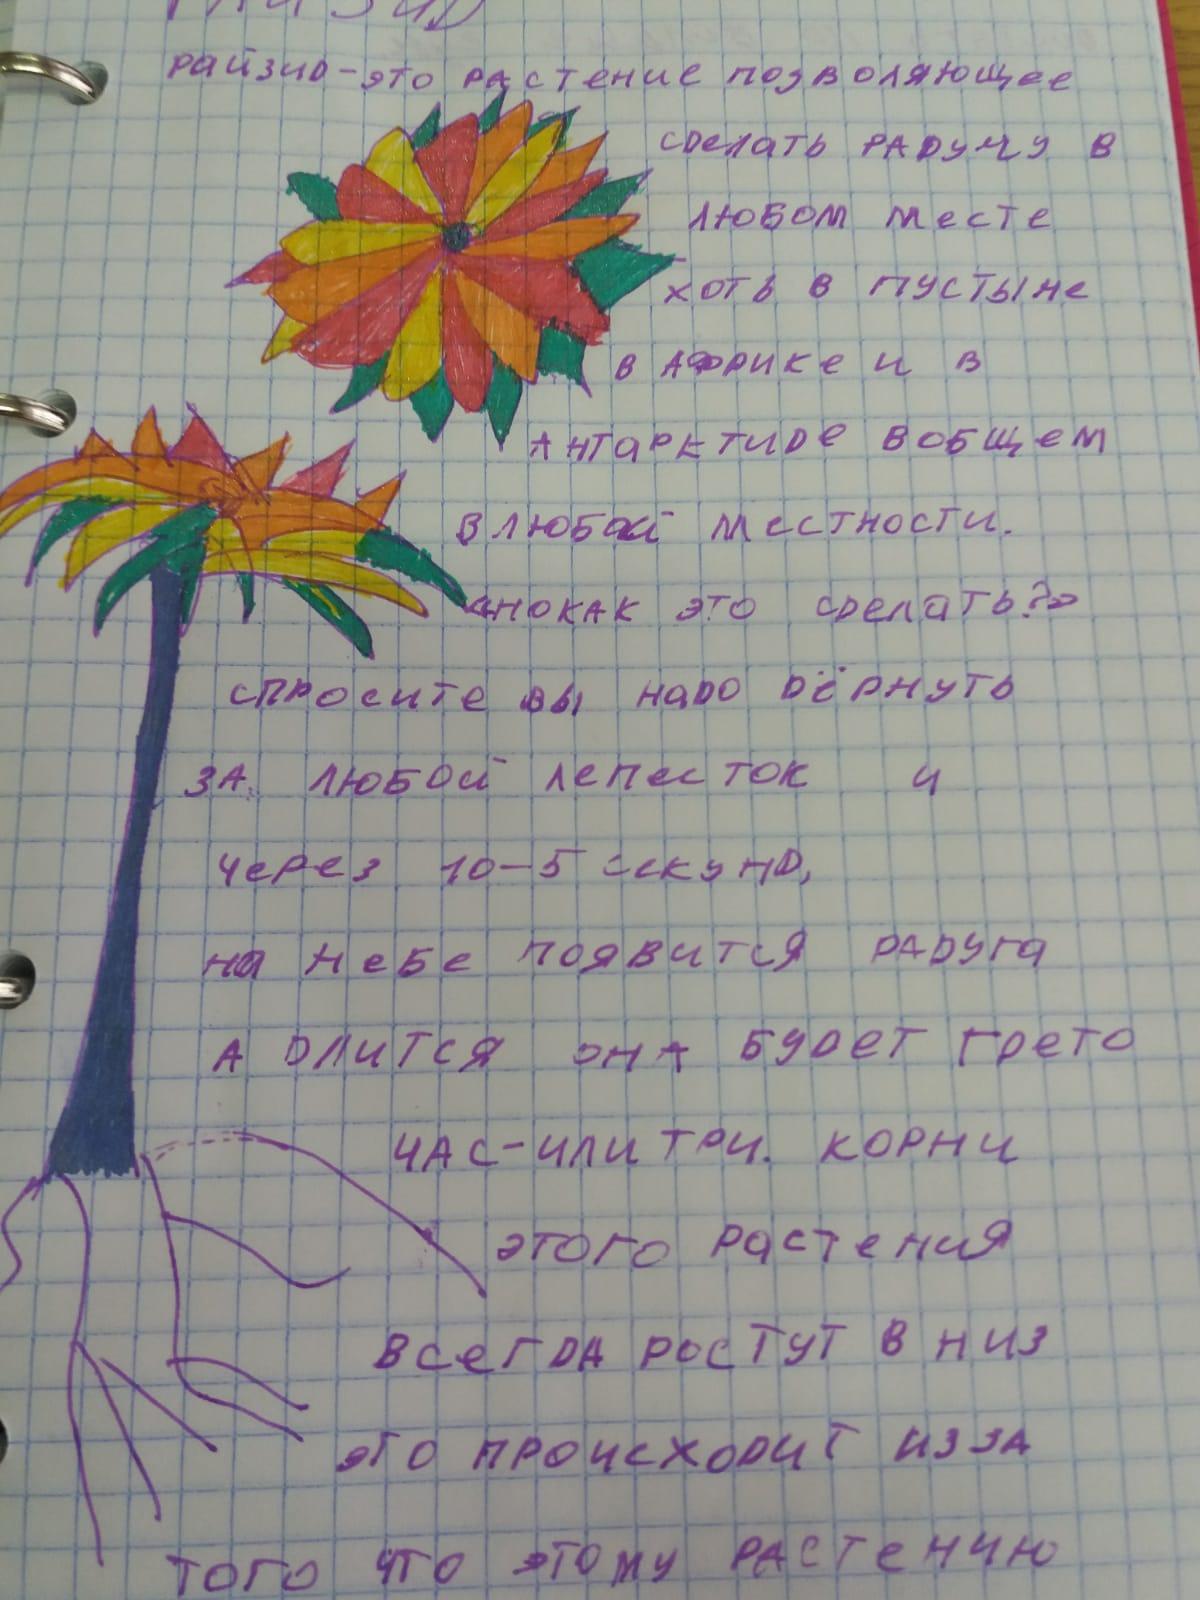 РАЙЗИД
РАЙЗИД-ЭТО РАСТЕНИЕ ПОЗВОЛЯЮЩЕЕ
СДЕЛАТЬ РАДУЧУ В
ЛЮБОМ МЕСТЕ
ХОТЬ В ПУСТЫНЕ
В АФРИКЕ И В
АНТАРКТИДЕ ВОБЩЕМ
В ЛЮБОЙ МЕСТНОСТИ.
«НОКАК ЭТО СДЕЛАТЬ?»
СПРОСИТЕ ВЫ НАДО ДЁРНУТЬ
ЗА ЛЮБОЙ ЛЕПЕСТОК И
ЧЕРЕЗ 10-5 СЕКУНД,
НА НЕБЕ ПОЯВИТСЯ РАДУГА
А ДЛИТСЯ ОНА БУДЕТ ГДЕТО
ЧАС-ИЛИ ТРИ. КОРНИ
ЭТОГО РАСТЕНИЯ
ВСЕГДА РОСТУТ В НИЗ
ЭТО ПРОИСХОДИТ ИЗЗА
ТОГО ЧТО ЭТОМУ РАСТЕНИЮ